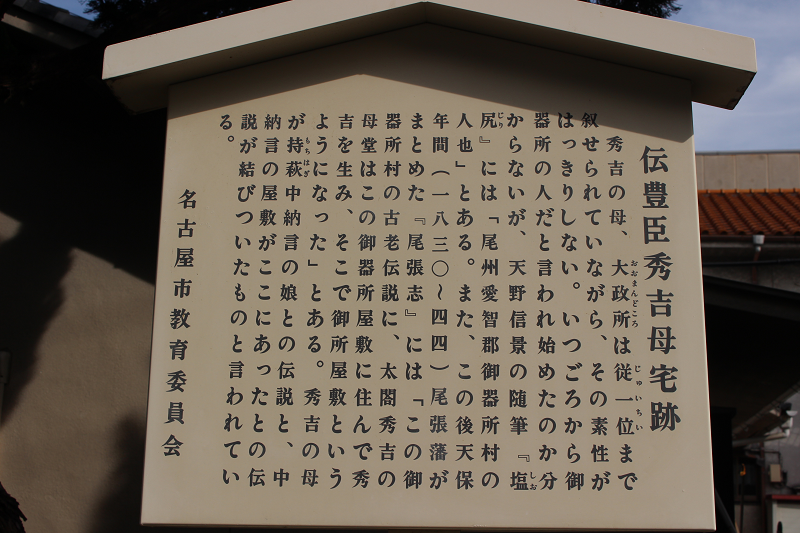 伝豊臣秀吉母宅跡
秀吉の母、大政所は従一位まで
叙せられていながら、その素性が
はっきりしない。いつごろから御
器所の人だと言われ始めたのか分
からないが、天野信景の随筆『塩
尻』には「尾州愛智郡御器所村の
人也」とある。また、この後天保
年間(一八三〇〜四四)尾張藩が
まとめた『尾張志』には「この御
器所村の古老伝説に、太閤秀吉の
母堂はこの御器所屋敷に住んで秀
吉を生み、そこで御所屋敷という
ようになった」とある。秀吉の母
が持萩中納言の娘との伝説と、中
納言の屋敷がここにあったとの伝
説が結びついたものと言われてい
る。
名古屋市教育委員会